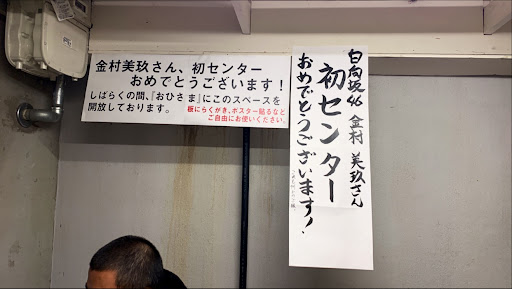 金村美玖さん、初センター
おめでとうございます!
しばらくの間、「おひさま」にこのスペースを
開放しております。
板にらくがき、ポスター貼るなど
ご自由にお使いください。
日向坂46 金村 美玖さん
初センター
おめでとうございます!